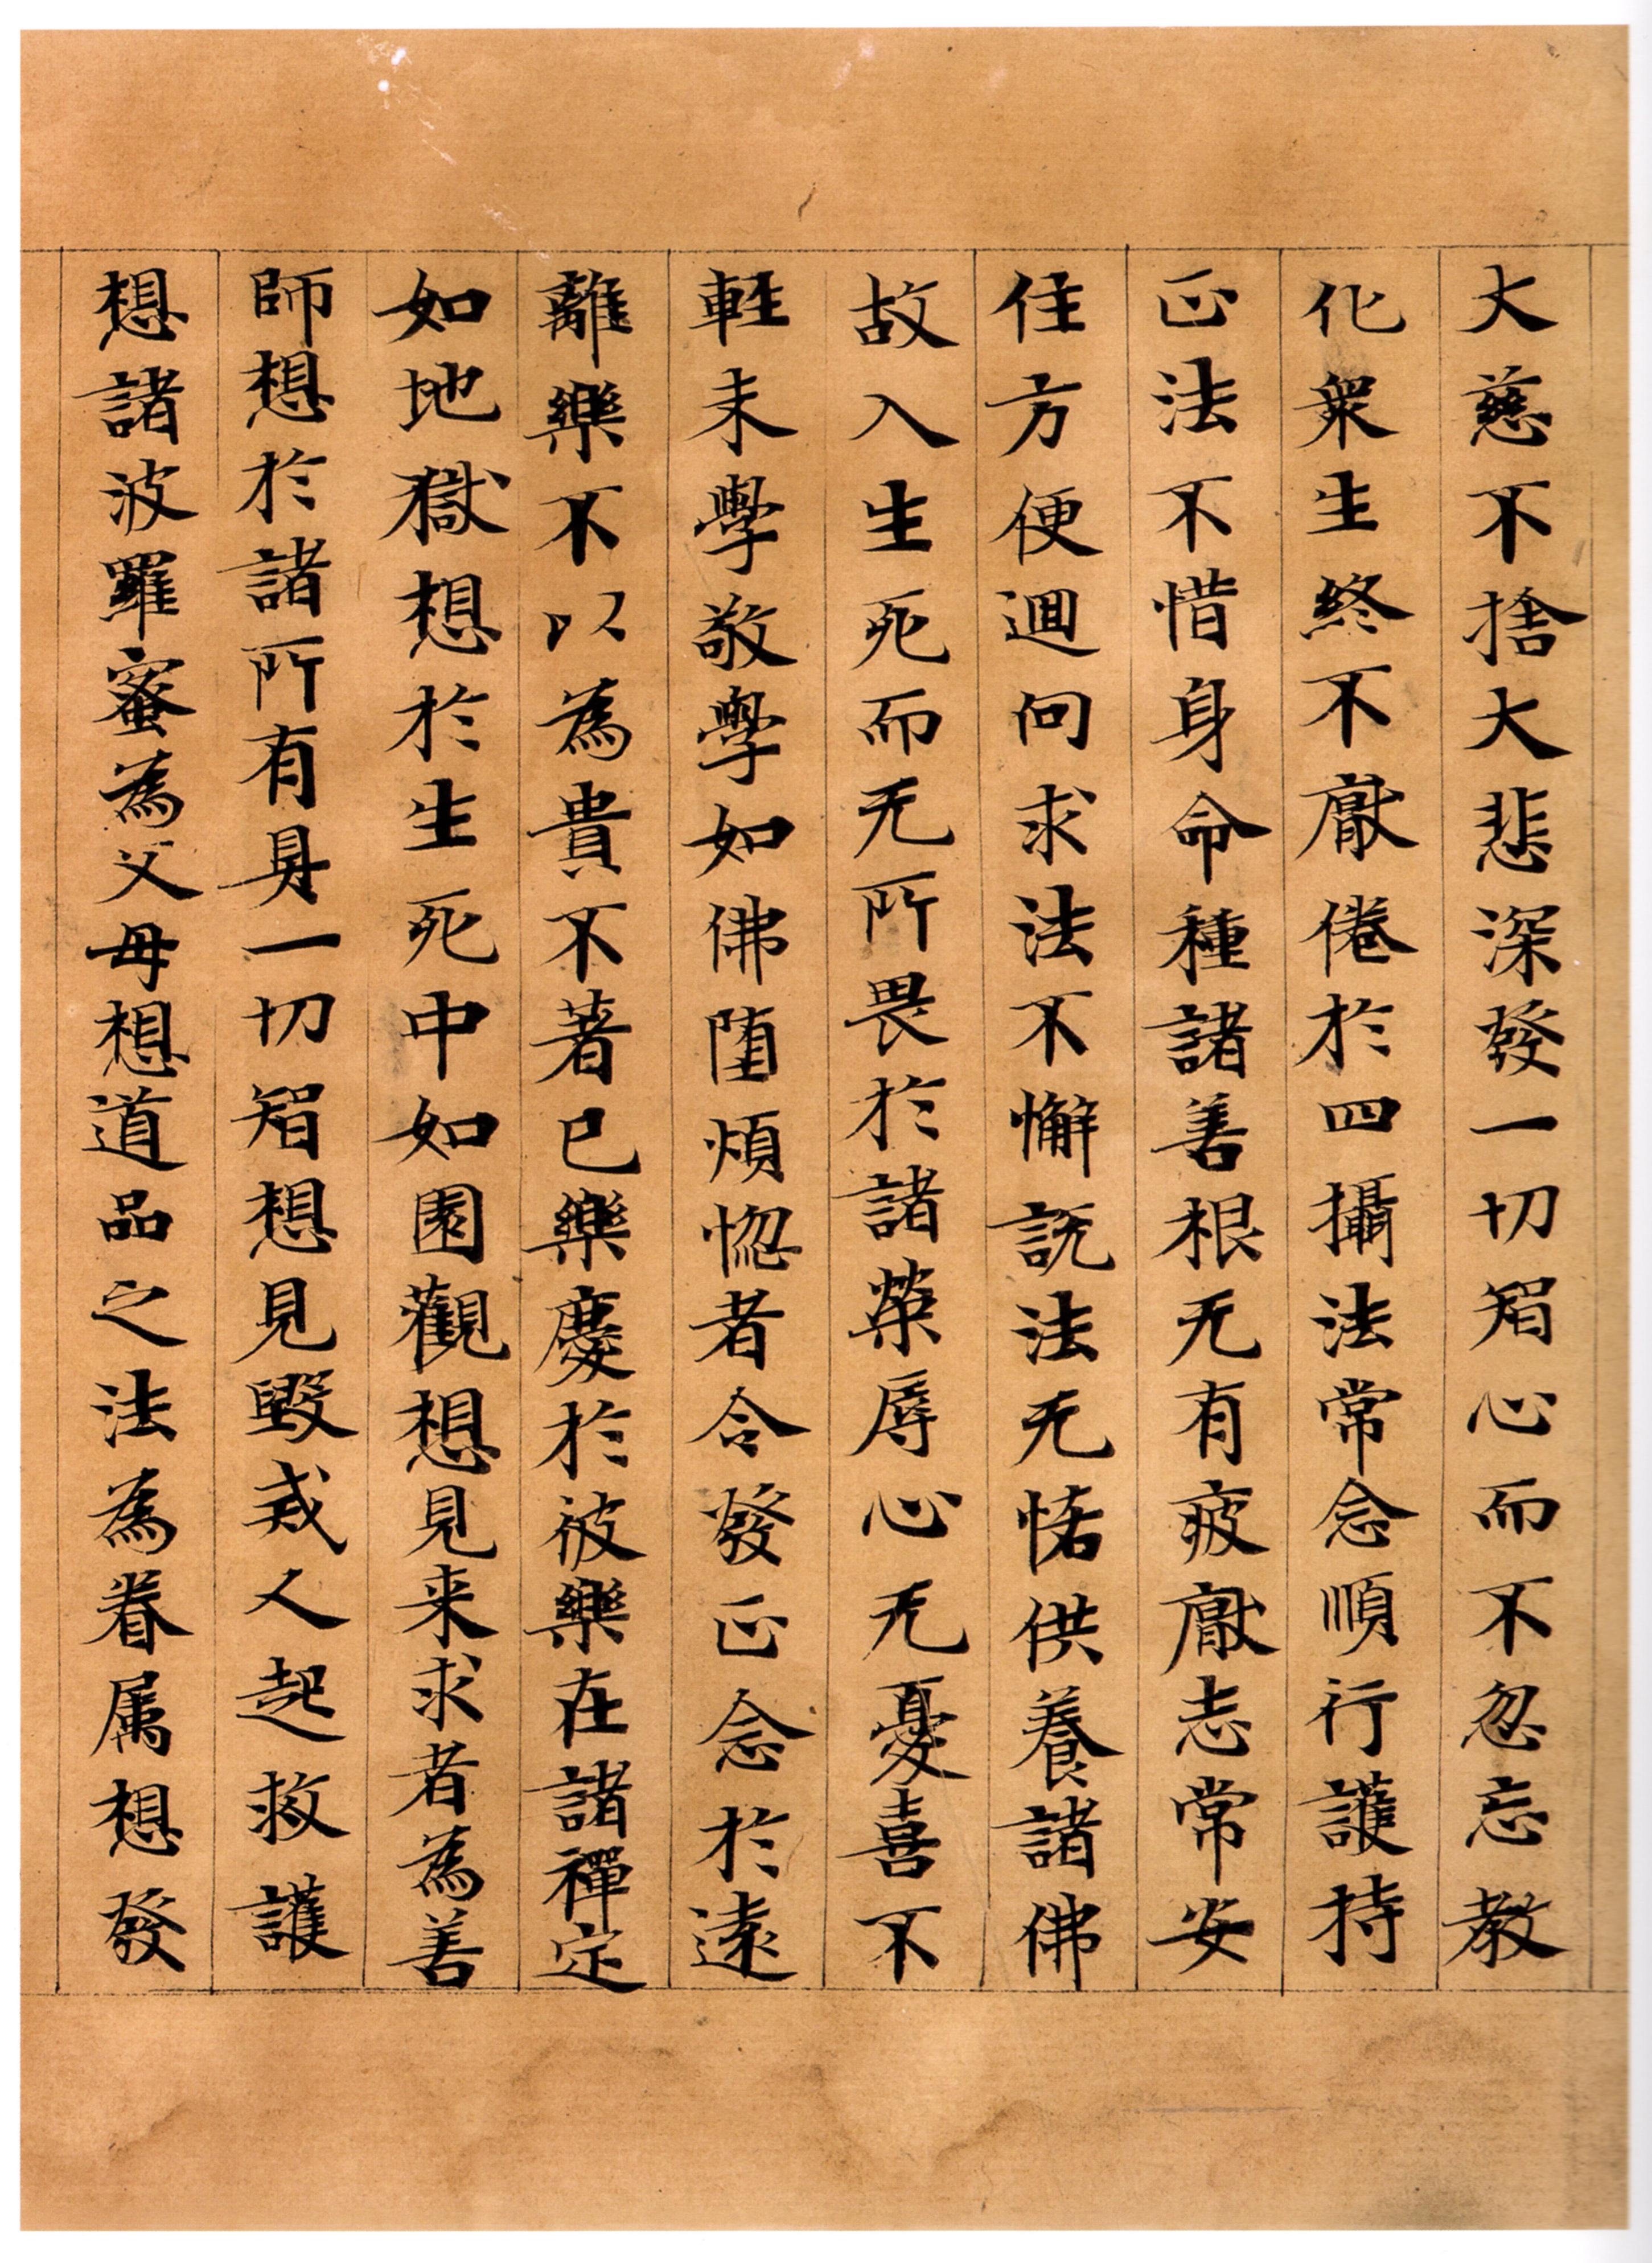 大慈不捨大悲深發一切智心而不忽忘教
化眾生終不厭倦於四攝法常念順行護持
正法不惜身命種諸善根无有疲厭志常安
住方便迴向求法不懈說法无悋供養諸佛
故入生死而无所畏於諸榮辱心无憂喜不
輕未學敬學如佛墮煩惱者令發正念於遠
離樂不以為貴不著已樂慶於彼樂在諸禪定
如地獄想於生死中如園觀想見来求者為善
師想於諸所有具一切智想見毀戒人起救護
想諸波羅蜜為父母想道品之法為眷属想發